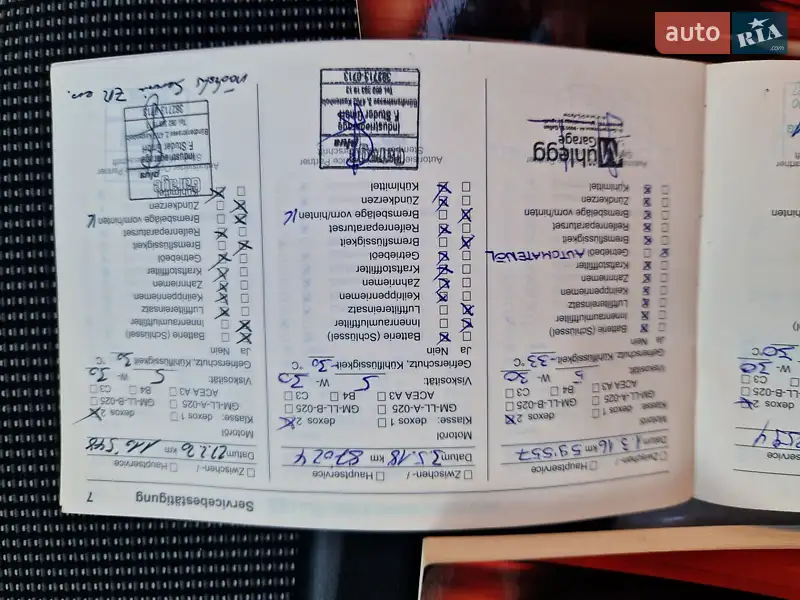 Servicebestätigung 7
Zwischen- /
Hauptservice
Datum 1.3.16 km 59'557
Motoröl
Klasse: dexos 1 dexos 2
GM-LL-A-025 GM-LL-B-025
ACEA A3 B4 C3
Viskosität: 5 W- 30
Gefrierschutz, Kühlflüssigkeit -33 °C
Ja Nein
Batterie (Schlüssel)
Innenraumluftfilter
Luftfiltereinsatz
Keilrippenriemen
Zahnriemen
Kraftstofffilter
Getriebeöl AUTOMATENÖL
Bremsflüssigkeit
Reifenreparaturset
Bremsbeläge vorn/hinten
Zündkerzen
Kühlmittel
Mühlegg
Garage
Zwischen- /
Hauptservice
Datum 3.5.18 km 87'024
Motoröl
Klasse: dexos 1 dexos 2
GM-LL-A-025 GM-LL-B-025
ACEA A3 B4 C3
Viskosität: 5 W- 30
Gefrierschutz, Kühlflüssigkeit -30 °C
Ja Nein
Batterie (Schlüssel)
Innenraumluftfilter
Luftfiltereinsatz
Keilrippenriemen
Zahnriemen
Kraftstofffilter
Getriebeöl
Bremsflüssigkeit
Reifenreparaturset
Bremsbeläge vorn/hinten
Zündkerzen
Kühlmittel
plus
Industriegarage
F. Studer GmbH
Zwischen- /
Hauptservice
Datum
km
Motoröl
Klasse: dexos 1 dexos 2
GM-LL-A-025 GM-LL-B-025
ACEA A3 B4 C3
Viskosität: 5 W- 30
Gefrierschutz, Kühlflüssigkeit 30 °C
Ja Nein
Batterie (Schlüssel)
Innenraumluftfilter
Luftfiltereinsatz
Keilrippenriemen
Zahnriemen
Kraftstofffilter
Getriebeöl
Bremsflüssigkeit
Reifenreparaturset
Bremsbeläge vorn/hinten
Zündkerzen
Kühlmittel
Garage
plus
Industriegarage
F. Studer GmbH
auto RIA
.com